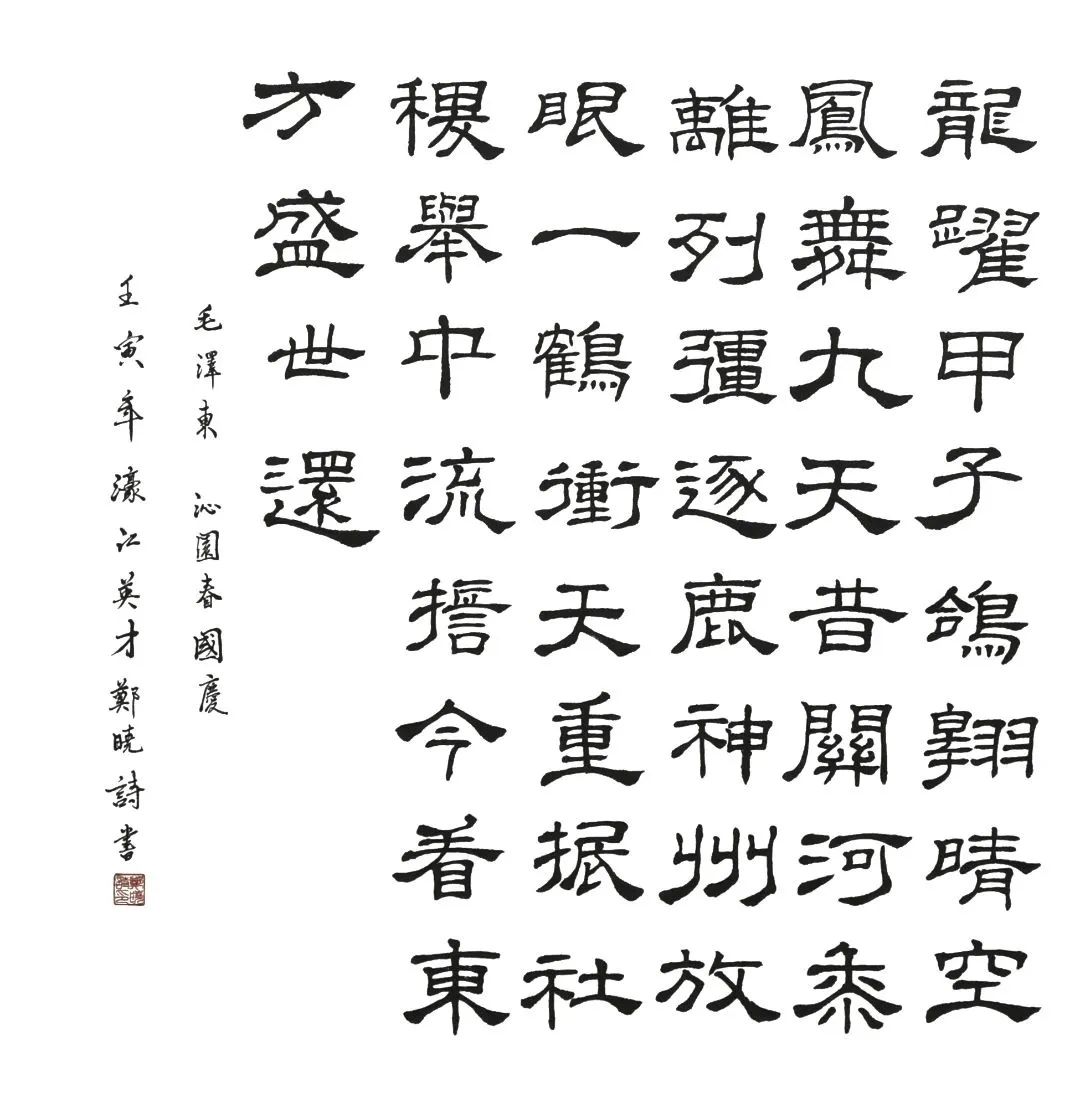 龍躍甲子鴿翱晴空
鳳舞九天昔關河黍
離列彊逐鹿神州放
眼一鶴衝天重振社
稷舉中流擔今看東
方盛世還
毛澤東 沁園春國慶
壬寅年濠江英才鄭曉詩書